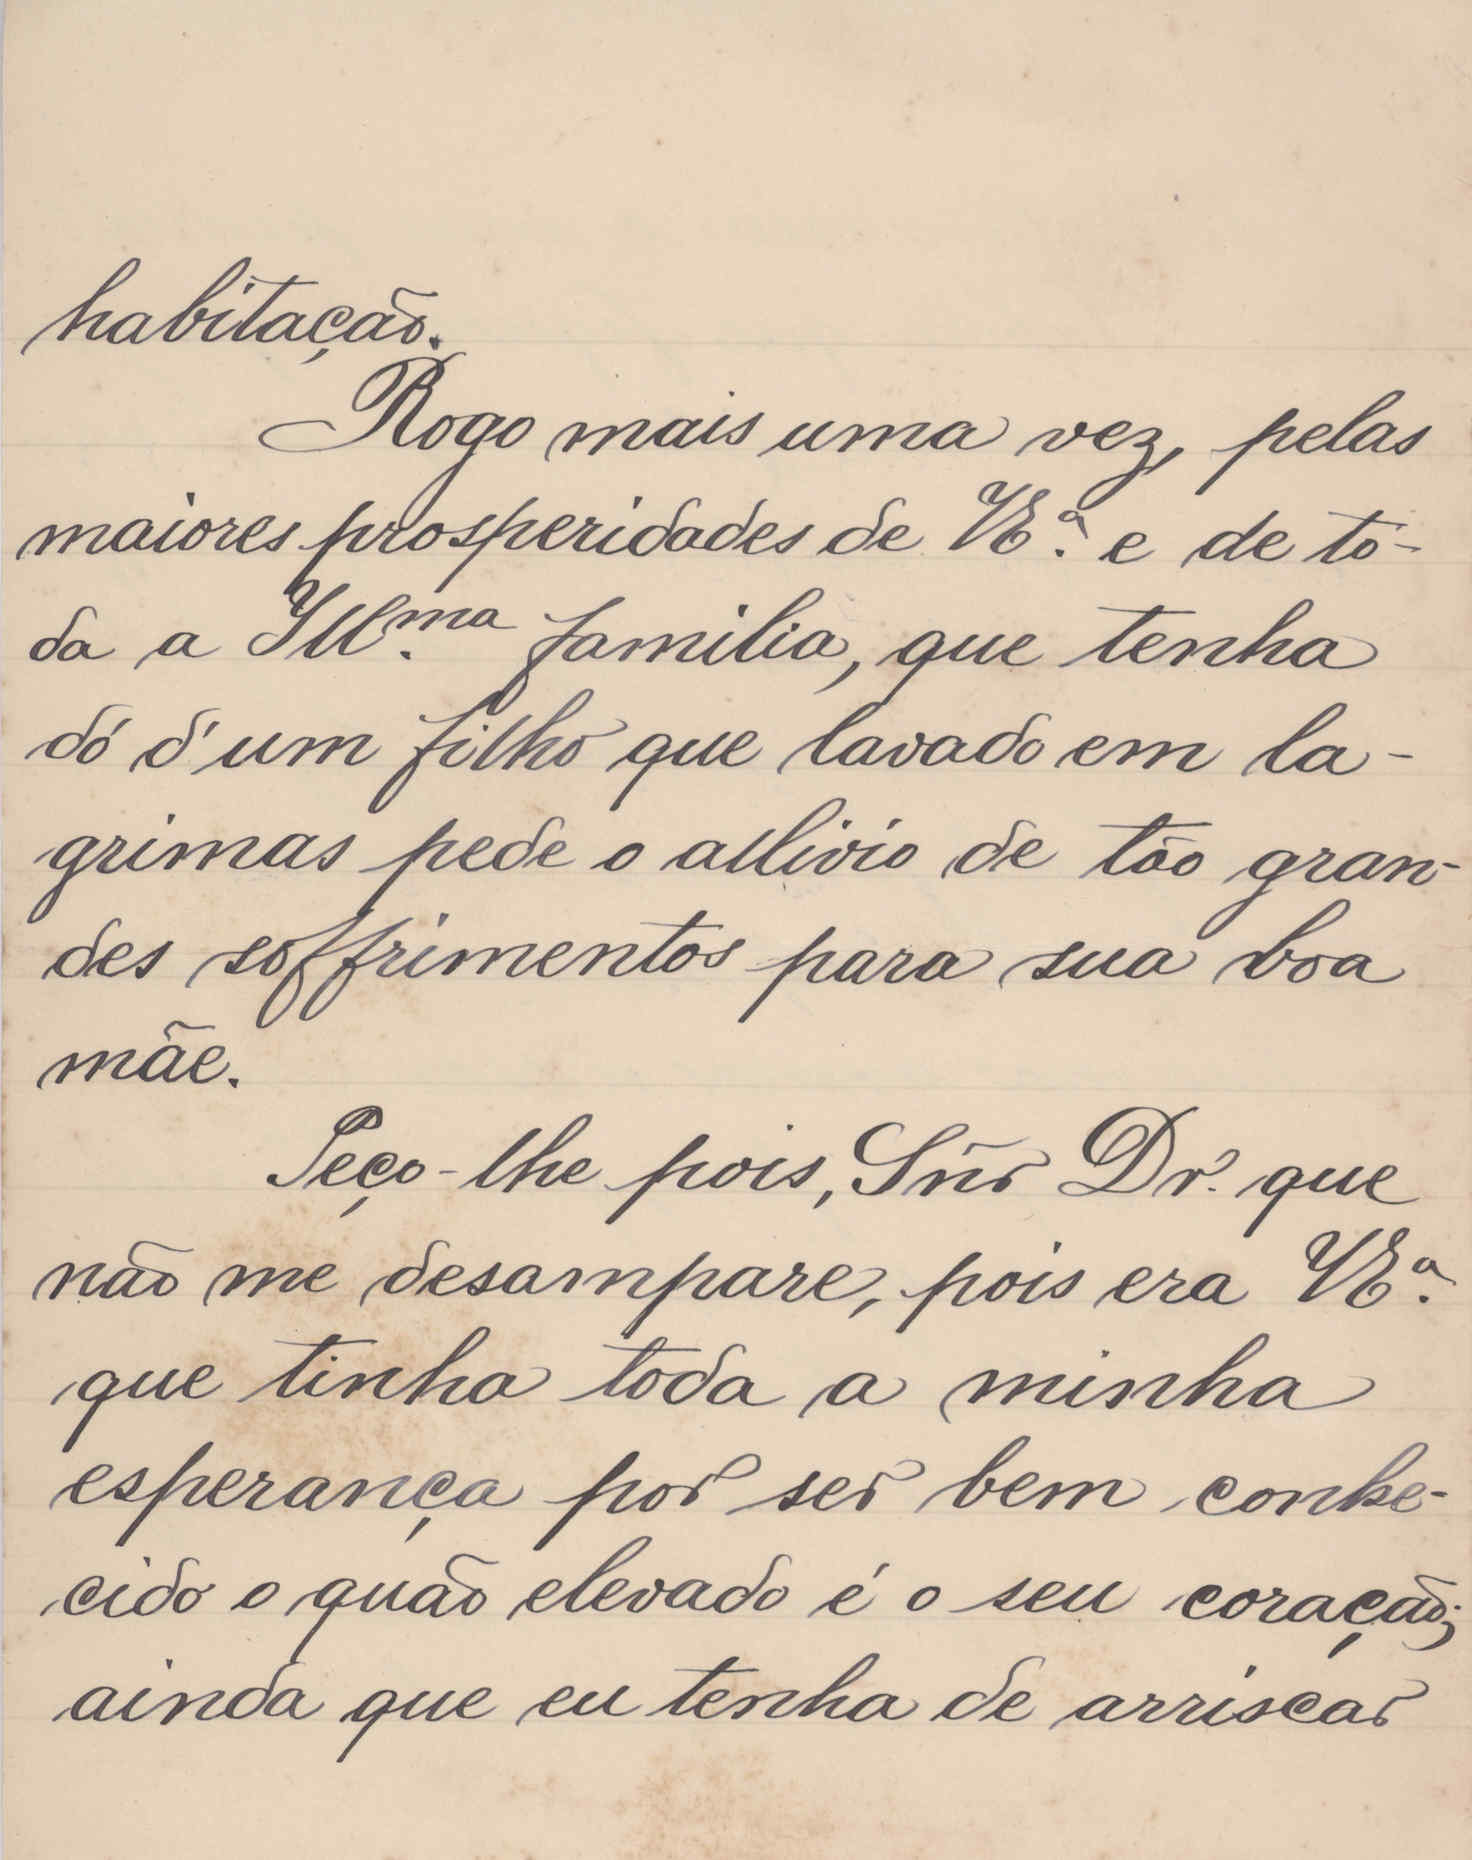 habitação.
Rogo mais uma vez, pelas
maiores prosperidades de VEª. e de to-
da a Ill.ma familia, que tenha
dó d'um filho que lavado em la-
grimas pede o allivio de tão gran-
des soffrimentos para sua boa
mãe.
Peço-lhe pois, Sñr Dr. que
não me desampare, pois era VEª.
que tinha toda a minha
esperança por ser bem conhe-
cido o quão elevado é o seu coração;
ainda que eu tenha de arriscar